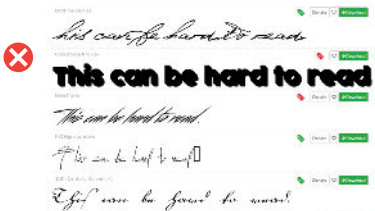 his can be hard to read
Donate Download
This can be hard to read
Donate Download
This can be hard to read.
Donate Download
This can be hard to read
Donate Download
This can be hard to read.
Donate Download